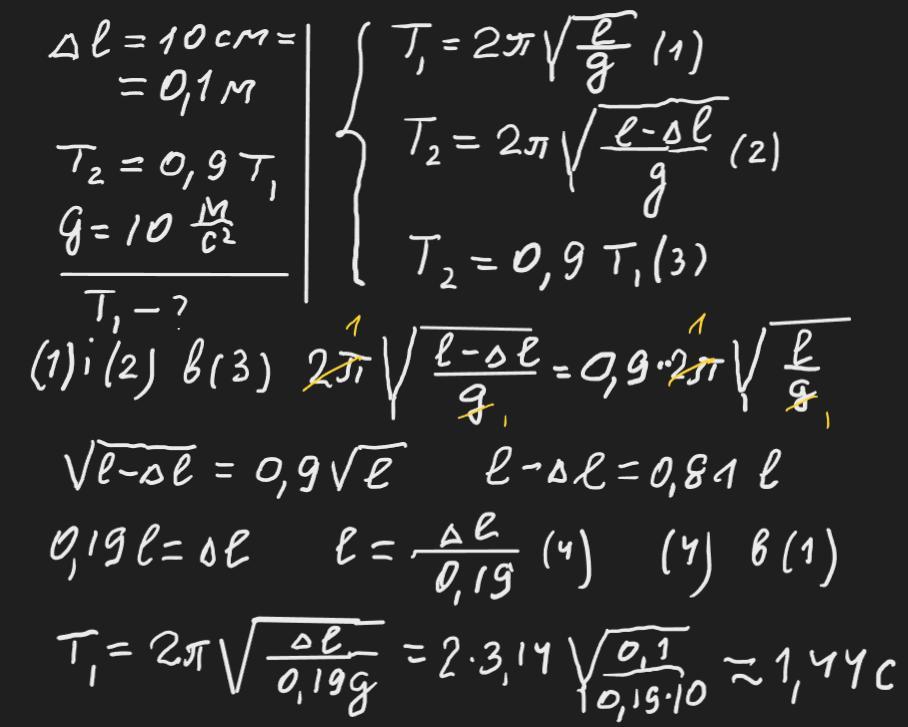 Δl = 10 см =
= 0,1 м
T₂ = 0,9 T₁
g = 10 м/с²
T₁ – ?
T₁ = 2π√(l/g) (1)
T₂ = 2π√((l-Δl)/g) (2)
T₂ = 0,9 T₁ (3)
(1) і (2) в (3) 2π√((l-Δl)/g) = 0,9·2π√(l/g)
1 1 1 1
√(l-Δl) = 0,9√l l-Δl = 0,81 l
0,19l = Δl l = Δl/0,19 (4) (4) в (1)
T₁ = 2π√(Δl/0,19g) = 2·3,14√(0,1/0,19·10) ≈ 1,44 с